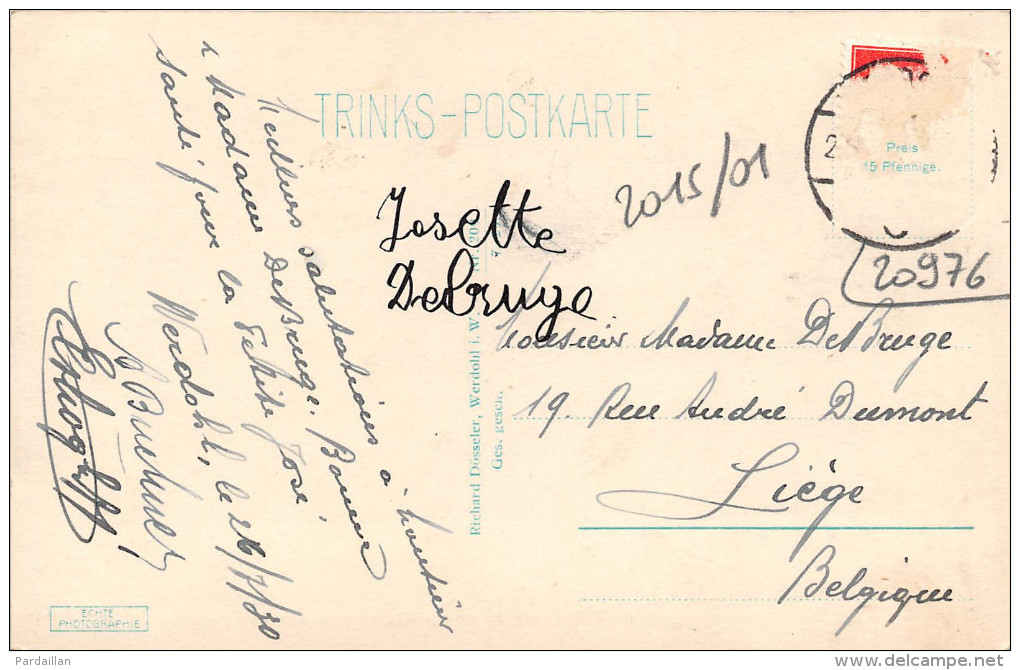 TRINKS-POSTKARTE
Preis
15 Pfennige.
2015/01
20976
Josette
Debruge
Meilleures salutations à Monsieur
& Madame DeBruge. Bonne
santé pour la Petite José.
Werdohl, le 26/7/30
A Buchner
Monsieur Madame DeBruge
19. Rue André Dumont
Liége
Belgique
Richard Dösseler, Werdohl i. W.
Ges. gesch.
ECHTE
PHOTOGRAPHIE
Pardaillan
delcampe.net